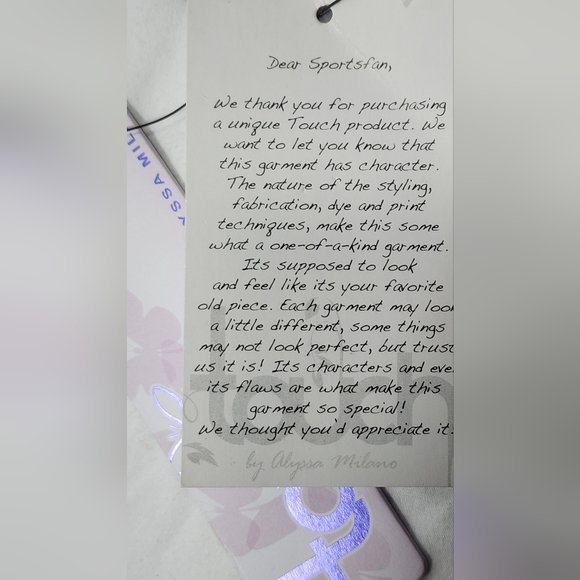 Dear Sportsfan,
We thank you for purchasing
a unique Touch product. We
want to let you know that
this garment has character.
The nature of the styling,
fabrication, dye and print
techniques, make this some
what a one-of-a-kind garment.
Its supposed to look
and feel like its your favorite
old piece. Each garment may look
a little different, some things
may not look perfect, but trust
us it is! Its characters and eve
its flaws are what make this
garment so special!
We thought you'd appreciate it.
touch
by Alyssa Milano
YSSA MIL